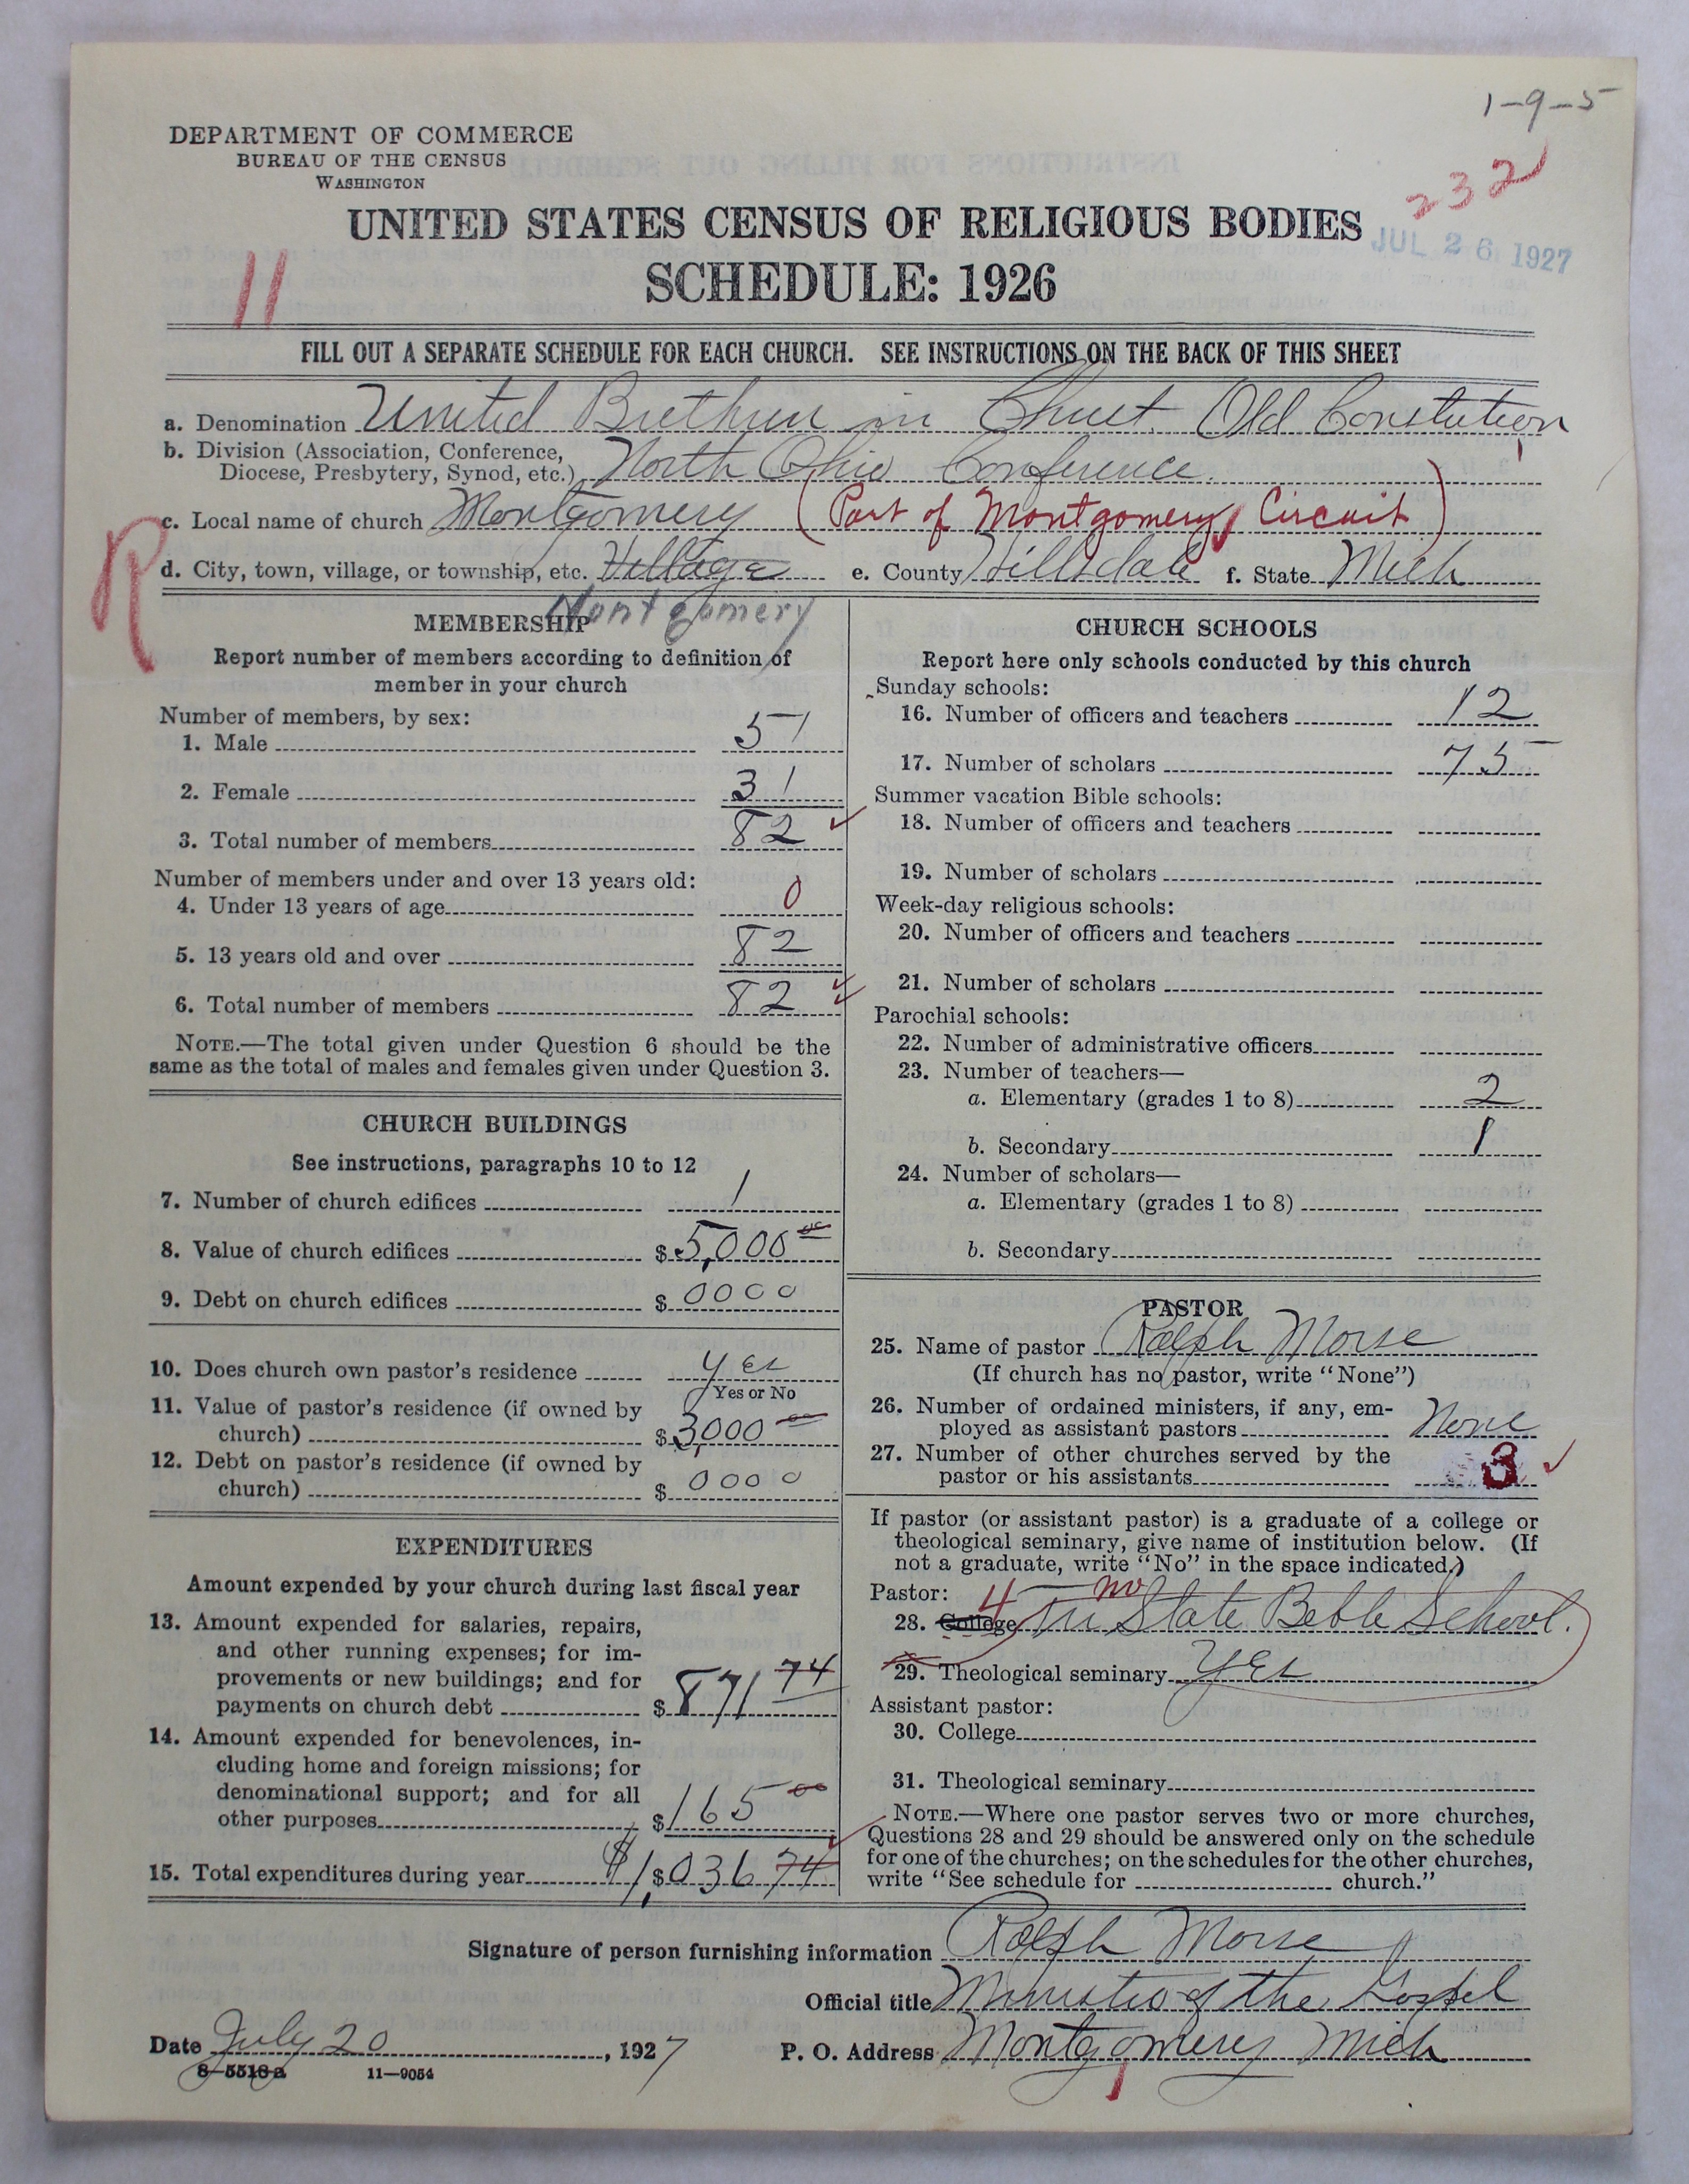 1-9-5
DEPARTMENT OF COMMERCE
BUREAU OF THE CENSUS
WASHINGTON
232
UNITED STATES CENSUS OF RELIGIOUS BODIES
JUL 26 1927
11
SCHEDULE: 1926
FILL OUT A SEPARATE SCHEDULE FOR EACH CHURCH. SEE INSTRUCTIONS ON THE BACK OF THIS SHEET
a. Denomination United Brethren in Christ. Old Constitution
b. Division (Association, Conference,
Diocese, Presbytery, Synod, etc.) North Ohio Conference.
c. Local name of church Montgomery (Part of Montgomery Circuit)
R
d. City, town, village, or township, etc. Village e. County Hillsdale f. State Mich
Montgomery
MEMBERSHIP
Report number of members according to definition of
member in your church
Number of members, by sex:
1. Male 51
2. Female 31
3. Total number of members 82
Number of members under and over 13 years old:
4. Under 13 years of age 0
5. 13 years old and over 82
6. Total number of members 82
NOTE.—The total given under Question 6 should be the
same as the total of males and females given under Question 3.
CHURCH BUILDINGS
See instructions, paragraphs 10 to 12
7. Number of church edifices 1
8. Value of church edifices $ 5,000 00
9. Debt on church edifices $ 0000
10. Does church own pastor's residence yes
Yes or No
11. Value of pastor's residence (if owned by
church) $ 3,000 00
12. Debt on pastor's residence (if owned by
church) $ 0000
EXPENDITURES
Amount expended by your church during last fiscal year
13. Amount expended for salaries, repairs,
and other running expenses; for im-
provements or new buildings; and for
payments on church debt $ 871 74
14. Amount expended for benevolences, in-
cluding home and foreign missions; for
denominational support; and for all
other purposes $ 165 00
15. Total expenditures during year $1,$036 74
CHURCH SCHOOLS
Report here only schools conducted by this church
Sunday schools:
16. Number of officers and teachers 12
17. Number of scholars 75
Summer vacation Bible schools:
18. Number of officers and teachers
19. Number of scholars
Week-day religious schools:
20. Number of officers and teachers
21. Number of scholars
Parochial schools:
22. Number of administrative officers
23. Number of teachers—
a. Elementary (grades 1 to 8) 2
b. Secondary 1
24. Number of scholars—
a. Elementary (grades 1 to 8)
b. Secondary
PASTOR
25. Name of pastor Ralph Morse
(If church has no pastor, write "None")
26. Number of ordained ministers, if any, em-
ployed as assistant pastors None
27. Number of other churches served by the
pastor or his assistants 3
If pastor (or assistant pastor) is a graduate of a college or
theological seminary, give name of institution below. (If
not a graduate, write "No" in the space indicated.)
Pastor: 4 no
28. College Tri State Bible School.
29. Theological seminary Yes
Assistant pastor:
30. College
31. Theological seminary
NOTE.—Where one pastor serves two or more churches,
Questions 28 and 29 should be answered only on the schedule
for one of the churches; on the schedules for the other churches,
write "See schedule for church."
Signature of person furnishing information Ralph Morse
Official title Minister of the Gospel
Date July 20, 1927 P. O. Address Montgomery Mich
8-5518a 11—9054